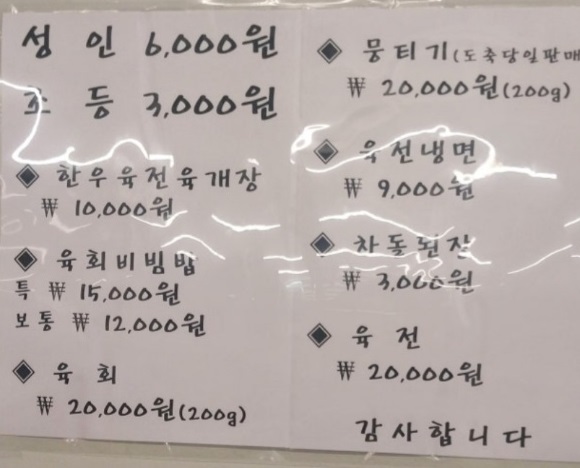 성 인 6,000원
초 등 3,000원
◈ 한우육전육개장
₩ 10,000원
◈ 육회비빔밥
특 ₩ 15,000원
보통 ₩ 12,000원
◈ 육 회
₩ 20,000원(200g)
◈ 뭉티기(도축당일판매
₩ 20,000원(200g)
◈ 육전냉면
₩ 9,000원
◈ 차돌된장
₩ 3,000원
◈ 육 전
₩ 20,000원
감사합니다